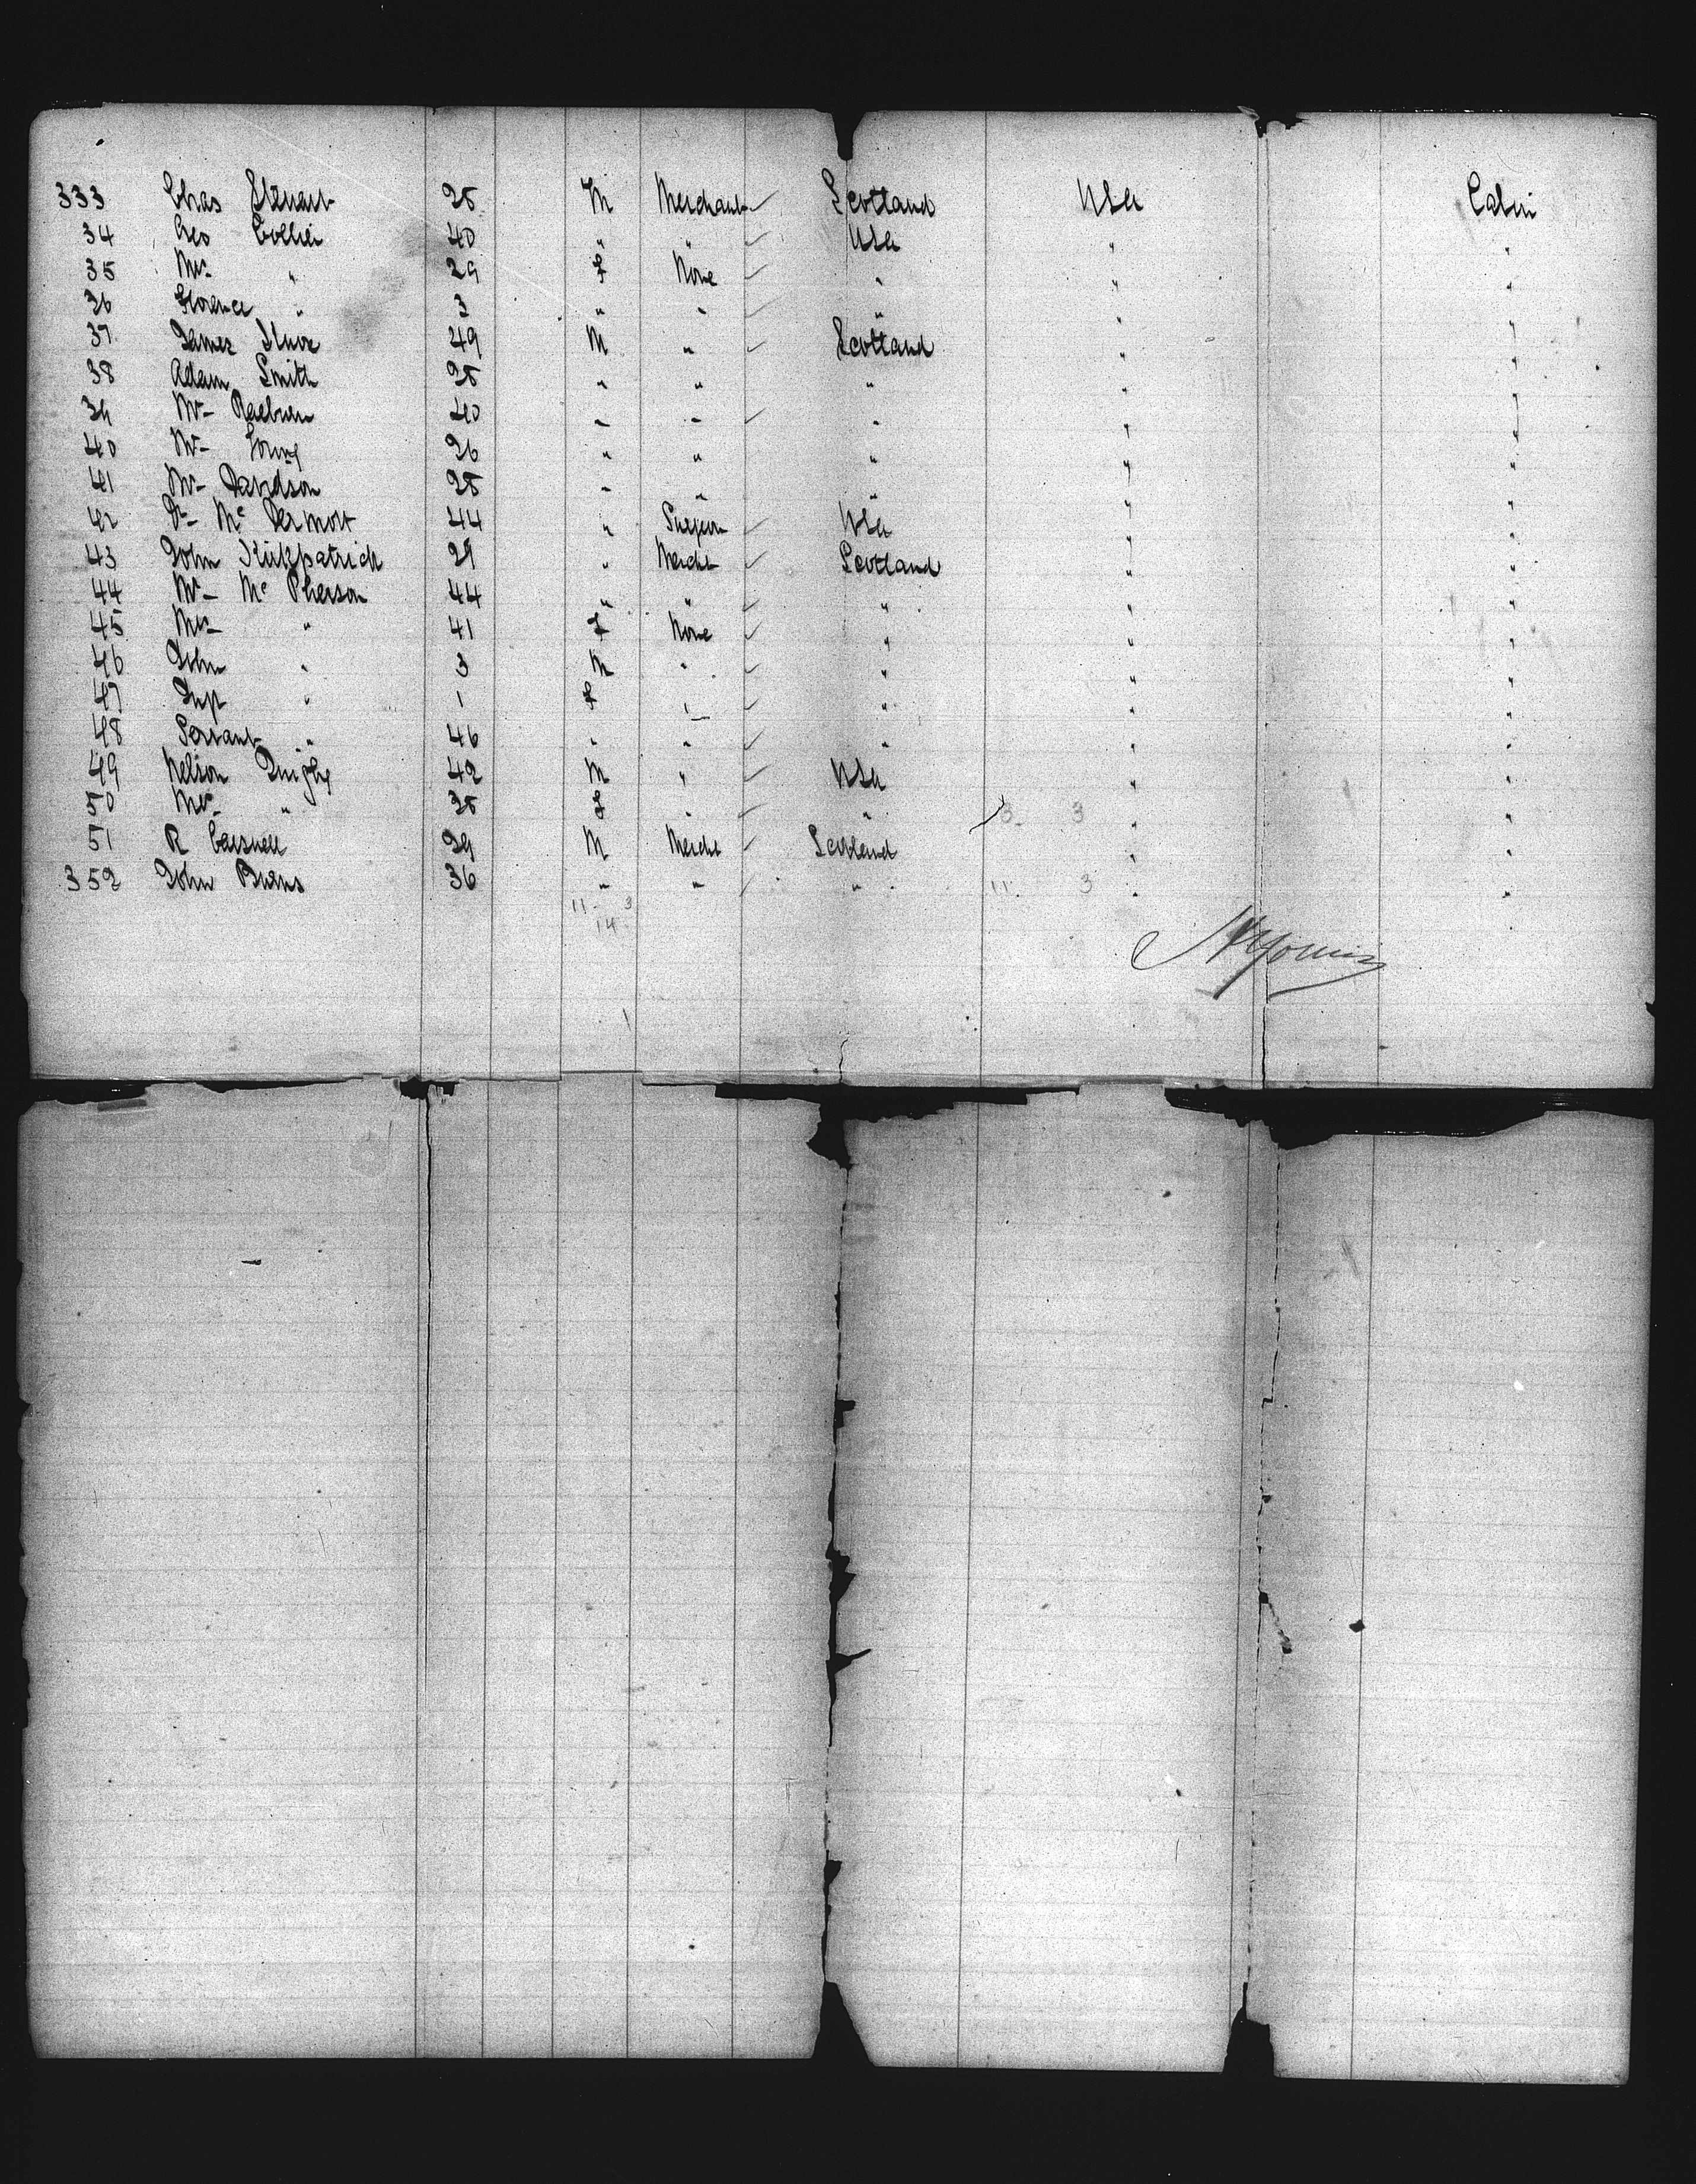 333 Chas Stewart 25 M Merchant ✓ Scotland USA Cabin
34 Geo Collier 40 " " ✓ USA " "
35 Mrs " 29 F None ✓ " " "
36 Florence " 3 " " ✓ " " "
37 James 49 M " ✓ Scotland " "
38 Adam Smith 25 " " " " "
39 Mr Raeburn 40 " " ✓ " " "
40 Mr Young 26 " " " " "
41 Mr Davidson 25 " " " " "
42 Dr Mc Dermott 44 " Surgeon ✓ USA " "
43 John Kirkpatrick 29 " Mercht ✓ Scotland " "
44 Mr Mc Pherson 44 " " ✓ " " "
45 Mrs " 41 F None ✓ " " "
46 John " 3 M " ✓ " " "
47 Inft " 1 F " ✓ " " "
48 Servant " 46 " " ✓ " " "
49 Nelson 42 M " ✓ USA " "
50 Mrs " 35 F " ✓ " 3 3 " "
51 R 29 M Mercht ✓ Scotland " "
352 John Burns 36 " " ✓ " 11 3 " "
11 - 3
14